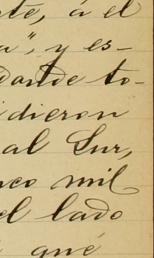 te, á el
a", y es-
donde to-
idieron
al Sur,
nco mil
el lado
qué